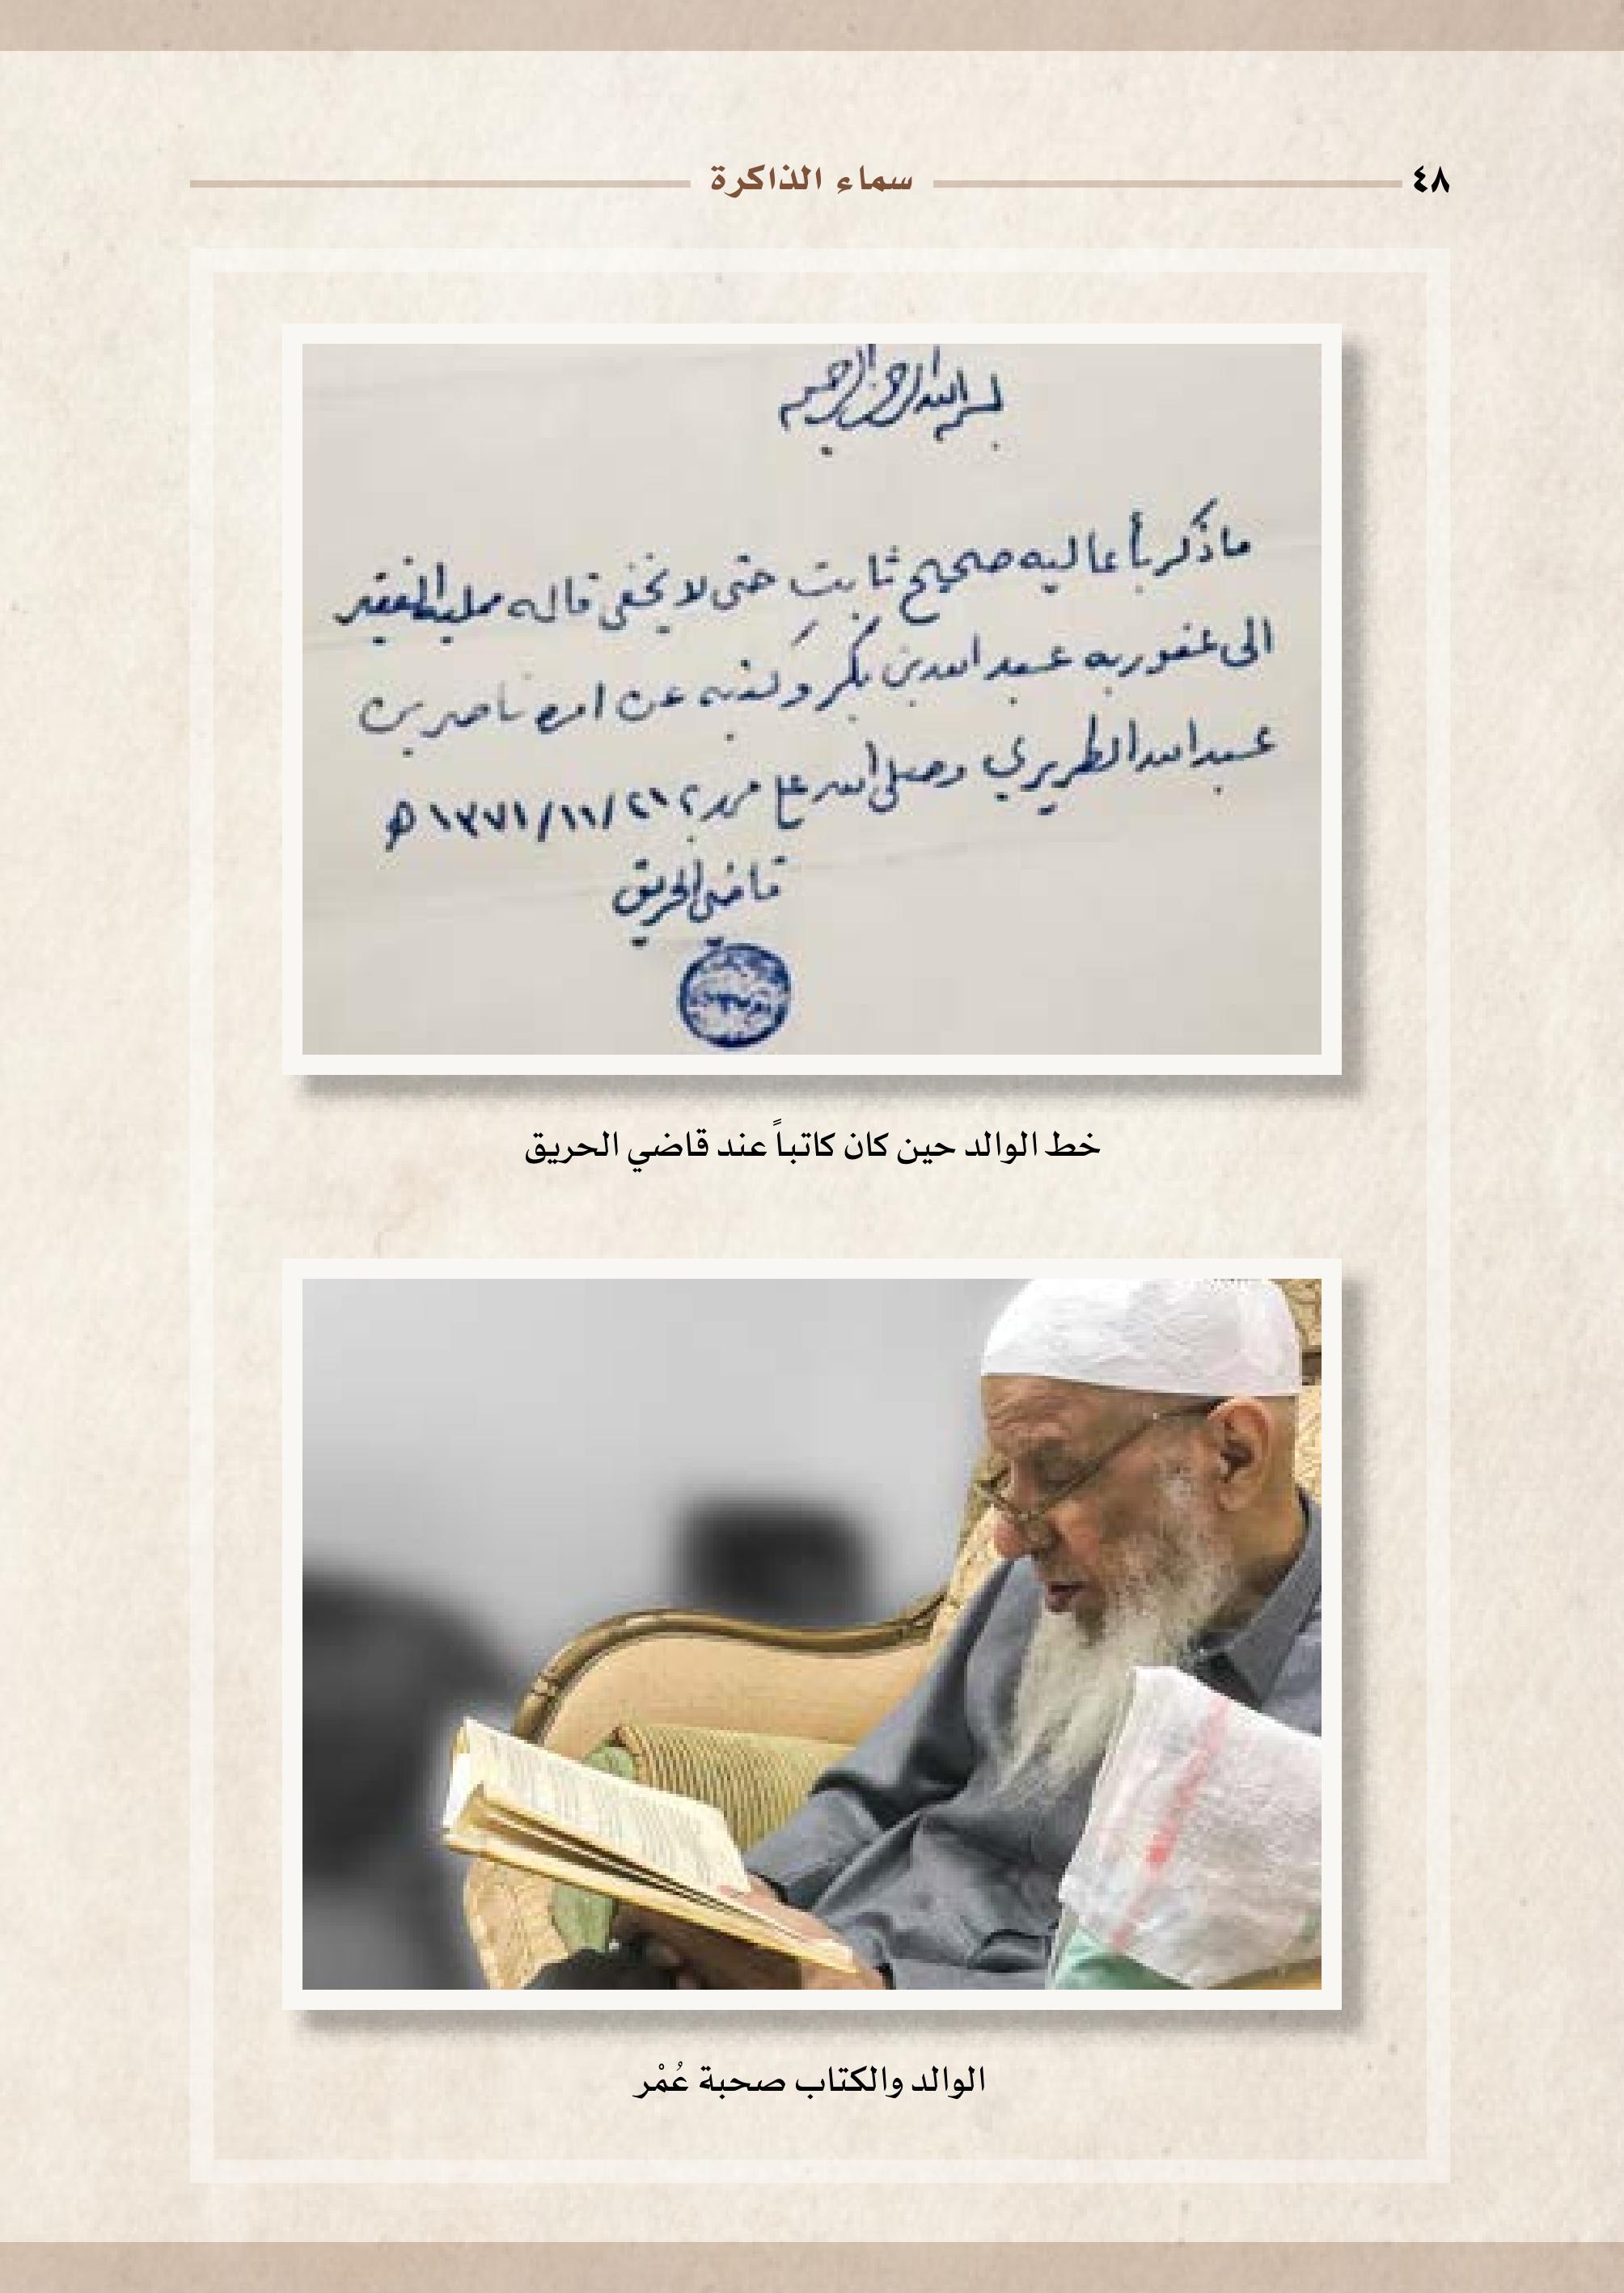 ٤٨
سماء الذاكرة
بسم الله الرحمن الرحيم
ما ذكر بأعاليه صحيح ثابت حتى لا يخفى قاله ممليه الفقير
الى عفو ربه عبد الله بن بكر وكتبه عن امره ناصر بن
عبد الله الطريري وصلى الله على محمد ٢١/١١/١٣٧١ه
قاضي الحريق
خط الوالد حين كان كاتباً عند قاضي الحريق
الوالد والكتاب صحبة عُمْر